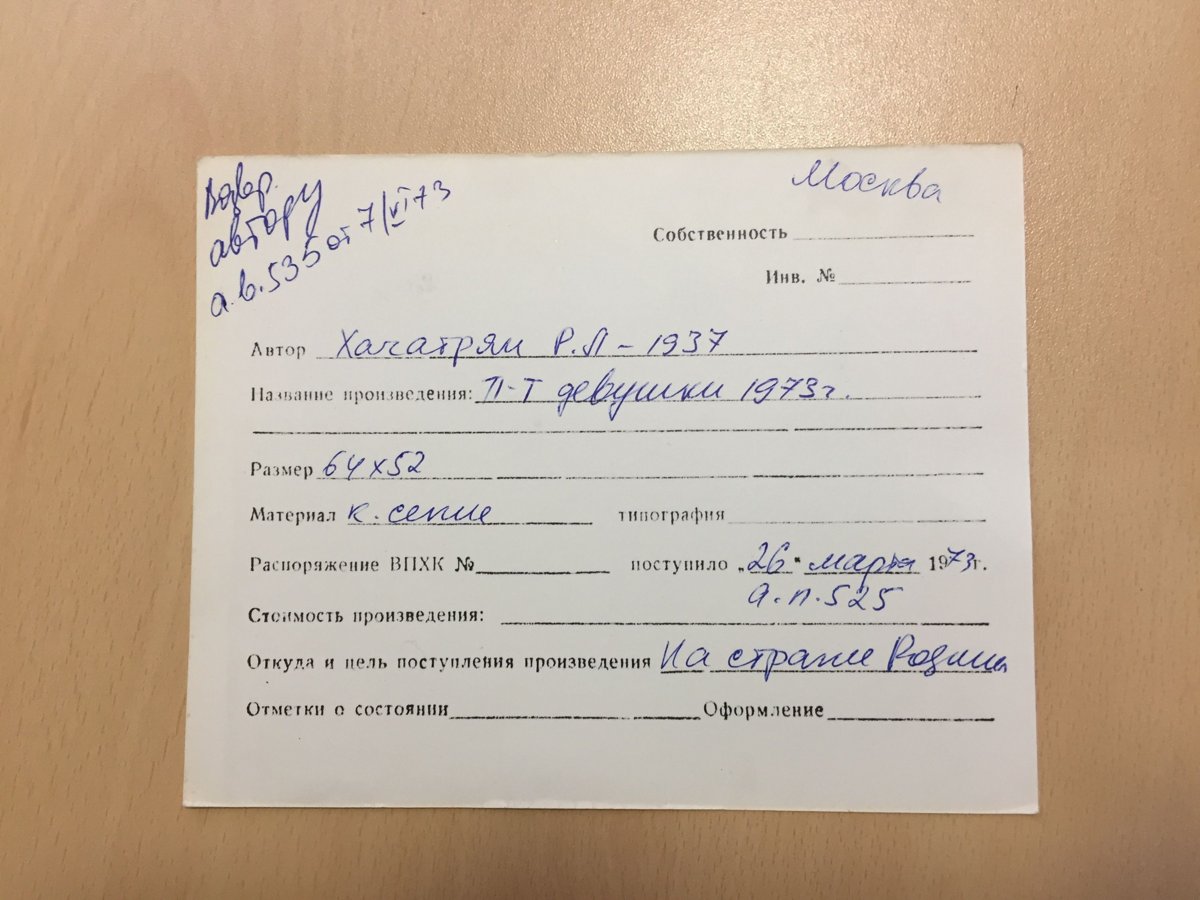 Возвр.
автору
а.в.535 от 7/VI 73
Москва
Собственность
Инв. №
Автор Хачатрян Р.Л - 1937
Название произведения: П-т девушки 1973г.
Размер 64х52
Материал к. сепие типография
Распоряжение ВПХК № поступило „26“ марта 1973г.
а.п.525
Стоимость произведения:
Откуда и цель поступления произведения На страже Родины
Отметки о состоянии Оформление